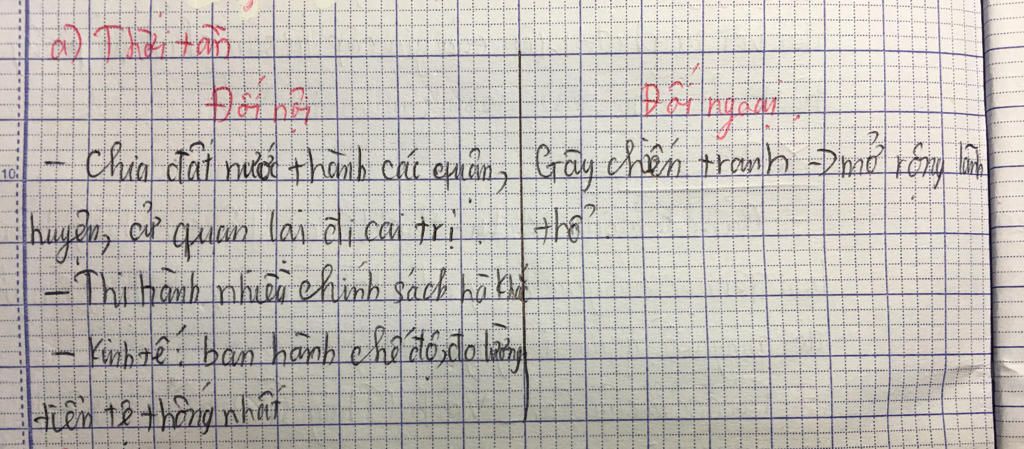 a) Thời tần
Đối nội
- Chia đất nước thành các quận,
huyện, cử quan lại đi cai trị.
- Thi hành nhiều chính sách hà khắc
- Kinh tế: ban hành chế độ, đo lường
tiền tệ thống nhất
Đối ngoại
Gây chiến tranh -> mở rộng lãnh
thổ.